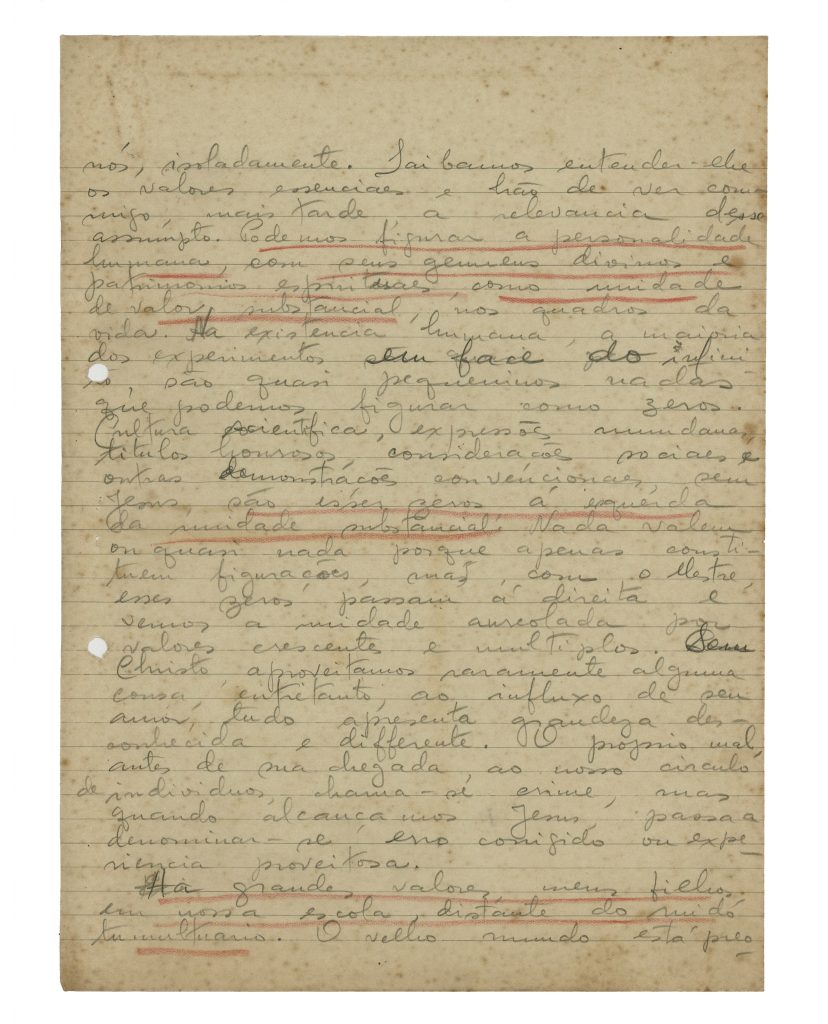 nós, isoladamente. Saibamos entender-lhe
os valores essenciaes e hão de ver com-
migo, mais tarde a relevancia desse
assumpto. Podemos figurar a personalidade
humana, com seus germens divinos e
patrimonios espirituaes, como unidade
de valor substancial, nos quadros da
vida. Na existencia humana, a maioria
dos experimentos em face do infini-
to, são quasi pequeninos nadas
que podemos figurar como zeros.
Cultura scientifica, expressões mundanas,
titulos honrosos, considerações sociaes e
outras demonstrações convencionaes, sem
Jesus são esses zeros á esquerda
da unidade substancial. Nada valem
ou quasi nada porque apenas consti-
tuem figurações, mas, com o Mestre,
esses zeros passam á direita e
vemos a unidade aureolada por
valores crescentes e multiplos. Sem
Christo, aproveitamos raramente alguma
cousa, entretanto, ao influxo de seu
amor, tudo apresenta grandeza des-
conhecida e differente. O proprio mal,
antes de sua chegada, ao nosso circulo
de individuos, chama-se crime, mas
quando alcançamos Jesus, passa a
denominar-se, erro corrigido ou expe-
riencia proveitosa.
Ha grandes valores, meus filhos,
em nossa escola, distante do ruido
tumultuario. O velho mundo está preo-